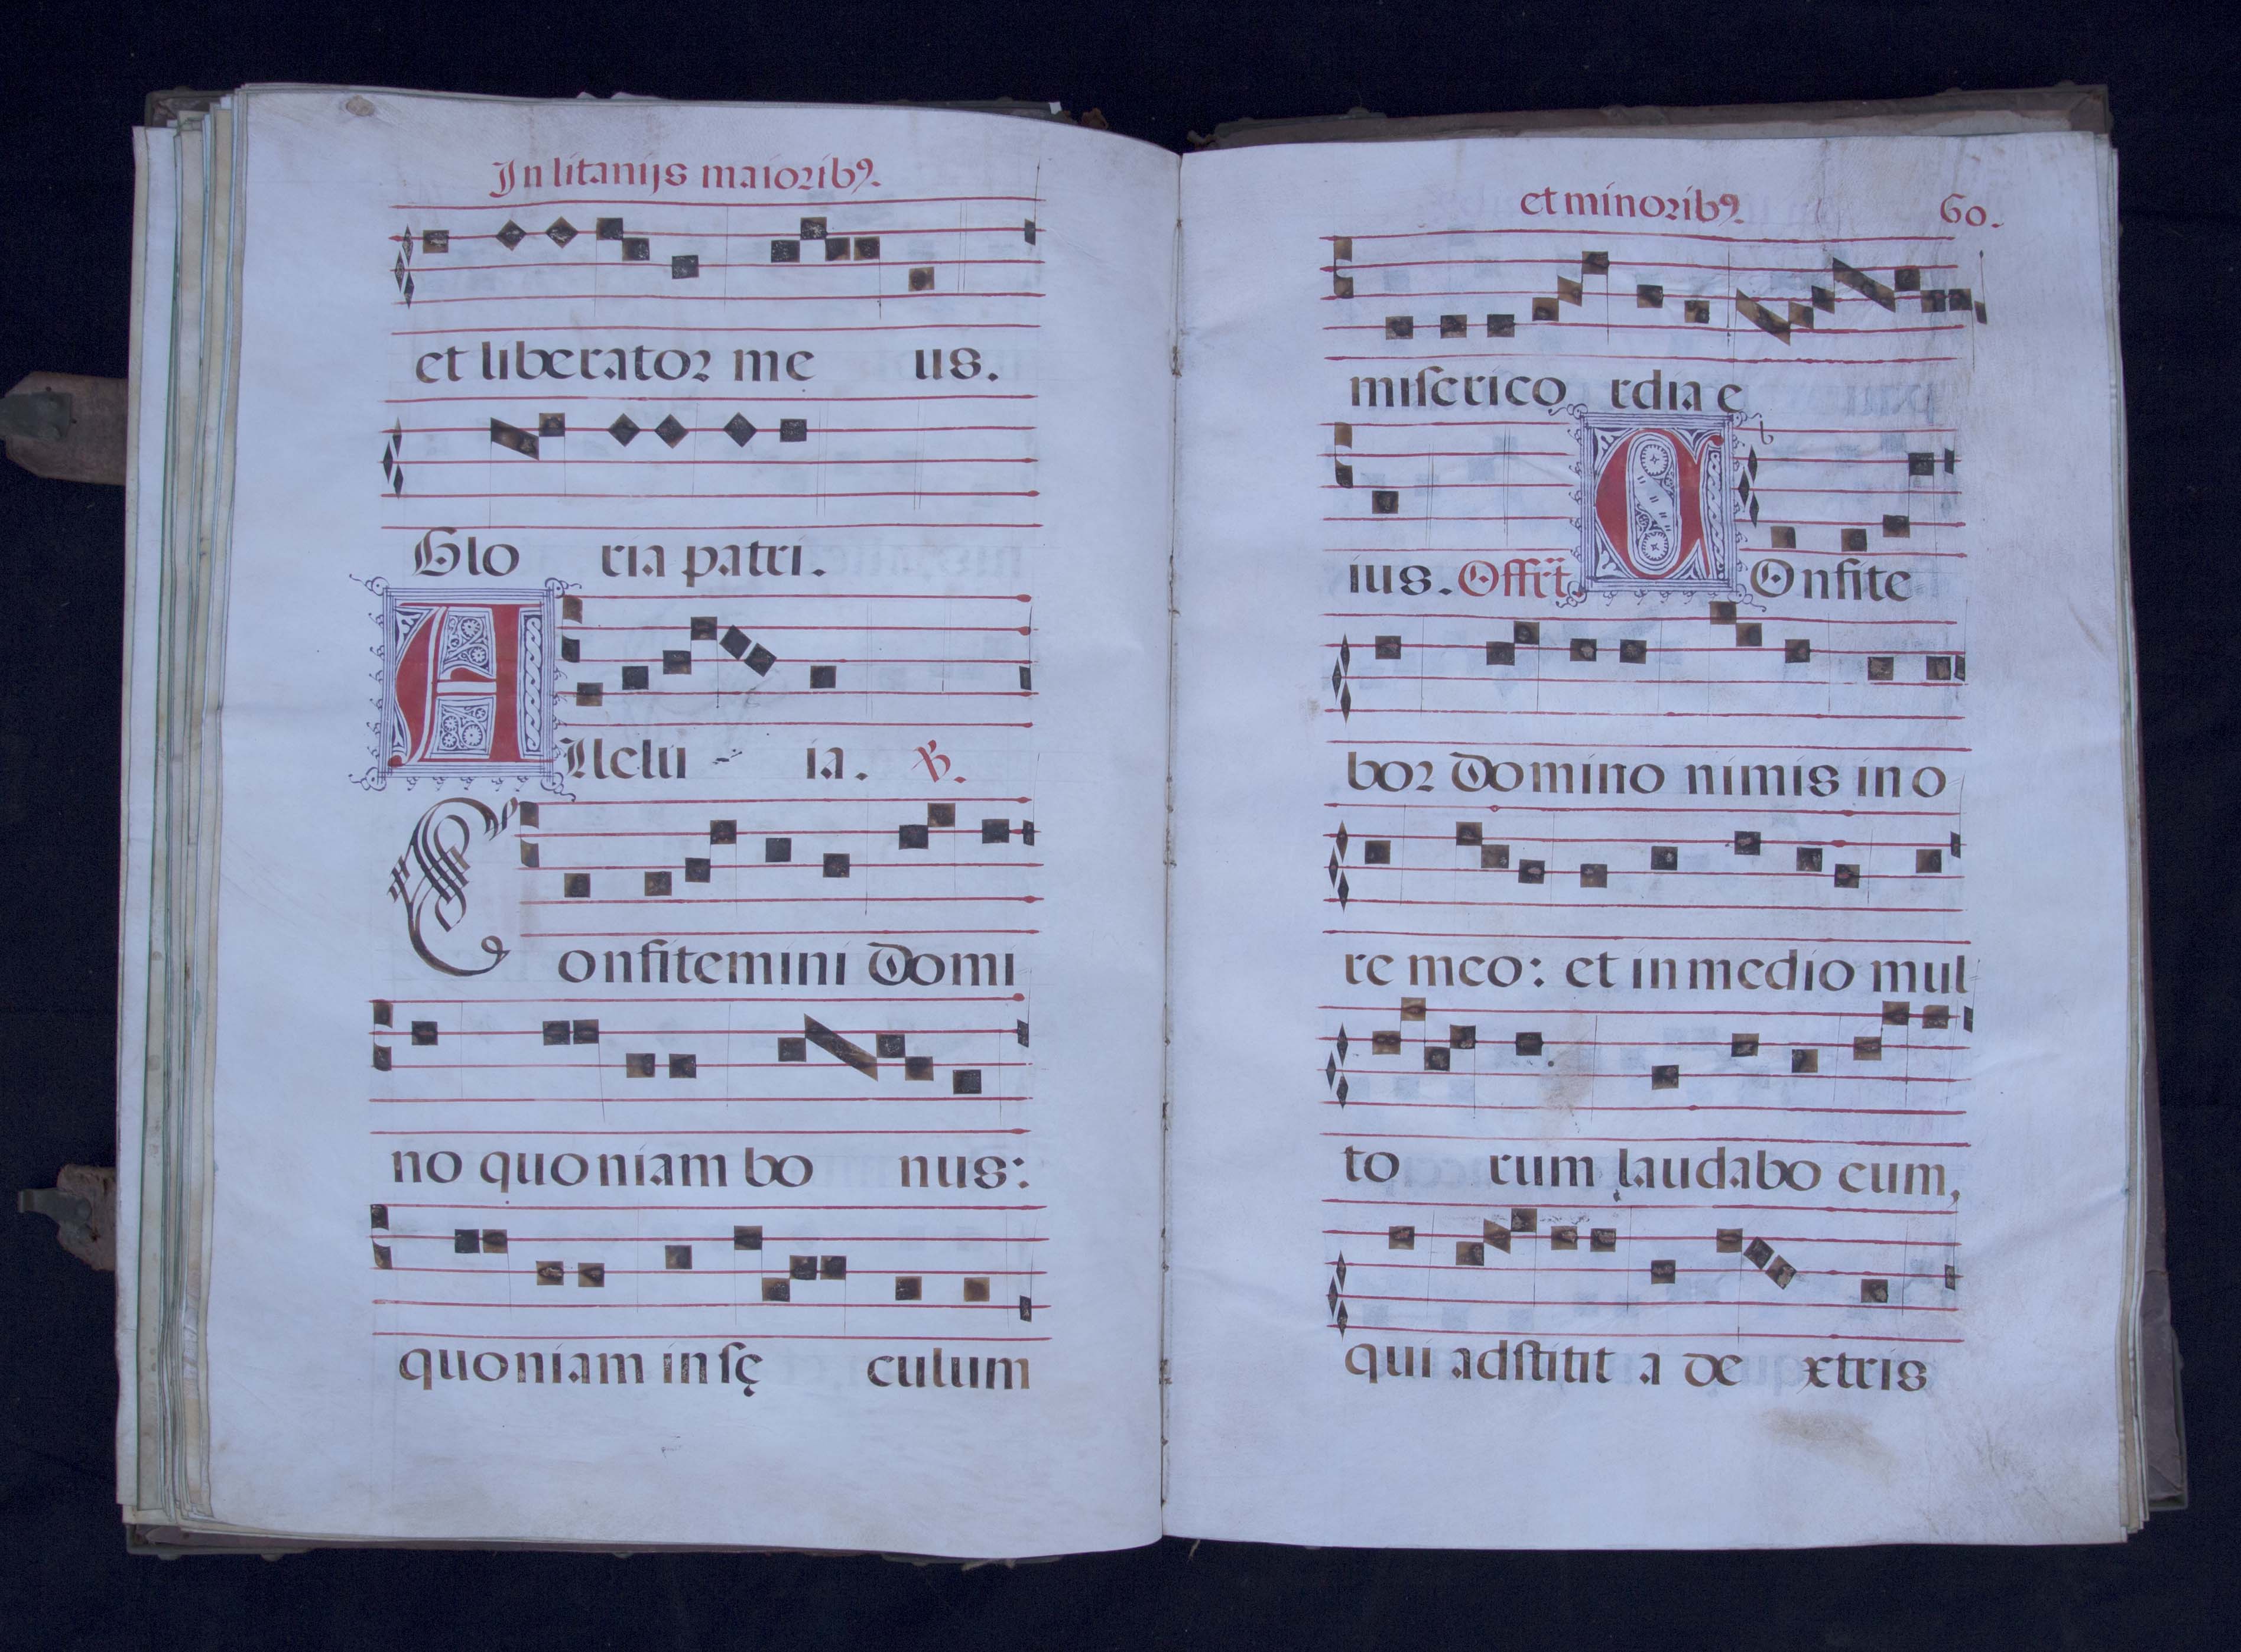 In litanijs maioribꝰ.
et liberator me us.
Glo ria patri.
Allelu - ia. ℣.
Confitemini Domi
no quoniam bo nus:
quoniam in sę culum
et minoribꝰ. 60.
miserico rdia e
ius. Offrt. COnfite
bor Domino nimis in o
re meo: et in medio mul
to rum laudabo eum,
qui adstitit a de xtris